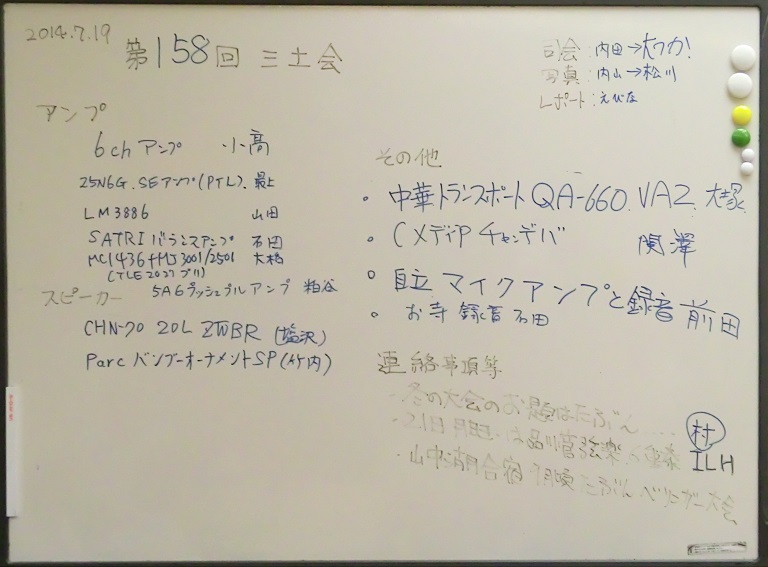 2014.7.19
第158回 三土会
司会:内田→大ワカ!
写真:内山→松川
レポート:えびな
アンプ
6chアンプ 小高
25N6G.SEアンプ(PTL). 最上
LM3886 山田
SATRI バランスアンプ 石田
MC1436+MJ3001/2501 大橋
(TLE2027プリ)
5A6プッシュプルアンプ 粕谷
スピーカー
CHN-70 20L ZWBR (塩沢)
Parc バンブーオーナメントSP(竹内)
その他
・中華トランスポート QA-660.VA2. 大塚
・CXディP チャンデバ 関澤
・自立マイクアンプと録音 前田
・お寺 録音 石田
連絡事項等
・冬の大会のお題はたぶん....
・21日 月曜は品川管弦楽
村
ILH
・山中湖月合宿 たぶん 大会